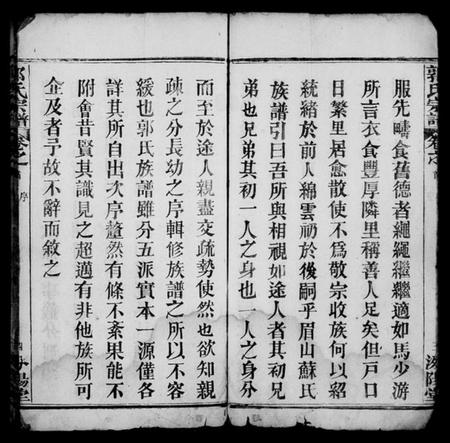 郭氏宗譜
服先疇食舊德者繩繩繼繼適如馬少游
所言衣食豐厚隣里稱善人足矣但戸口
日繁里居愈散使不爲敬宗收族何以紹
統緒於前人綿雲礽於後嗣乎眉山蘇氏
族譜引曰吾所與相視如途人者其初兄
弟也兄弟其初一人之身也一人之身分
而至於途人親盡交疏勢使然也欲知親
疎之分長幼之序輯修族譜之所以不容
緩也郭氏族譜雖分五派實本一源僅各
詳其所自出次序釐然有條不紊果能不
附會昔賢其識見之超邁有非他族所可
企及者乎故不辭而敘之
郭氏宗譜
序